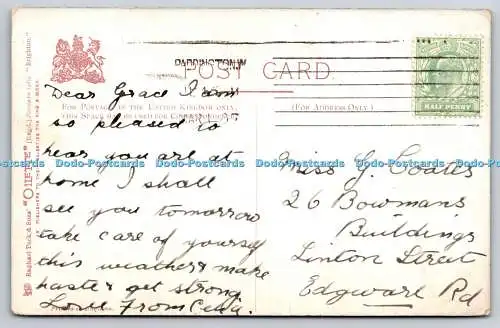 PADDINGTON.W
POST CARD.
HALF PENNY
FOR POSTAGE IN THE UNITED KINGDOM ONLY,
(FOR ADDRESS ONLY.)
Dear Grace I am
so pleased to
hear you are at
home I shall
see you tomorrow
take care of yourself
this weather & make
haste & get strong
Love From
Miss G. Coates
26 Bowmans
Buildings
Linton Street
Edgware Rd
Raphael Tuck & Sons' "OILETTE"
Dodo-Postcards Dodo-Postcards Dodo-Postcards Dodo-Postcards Dodo-Postcards